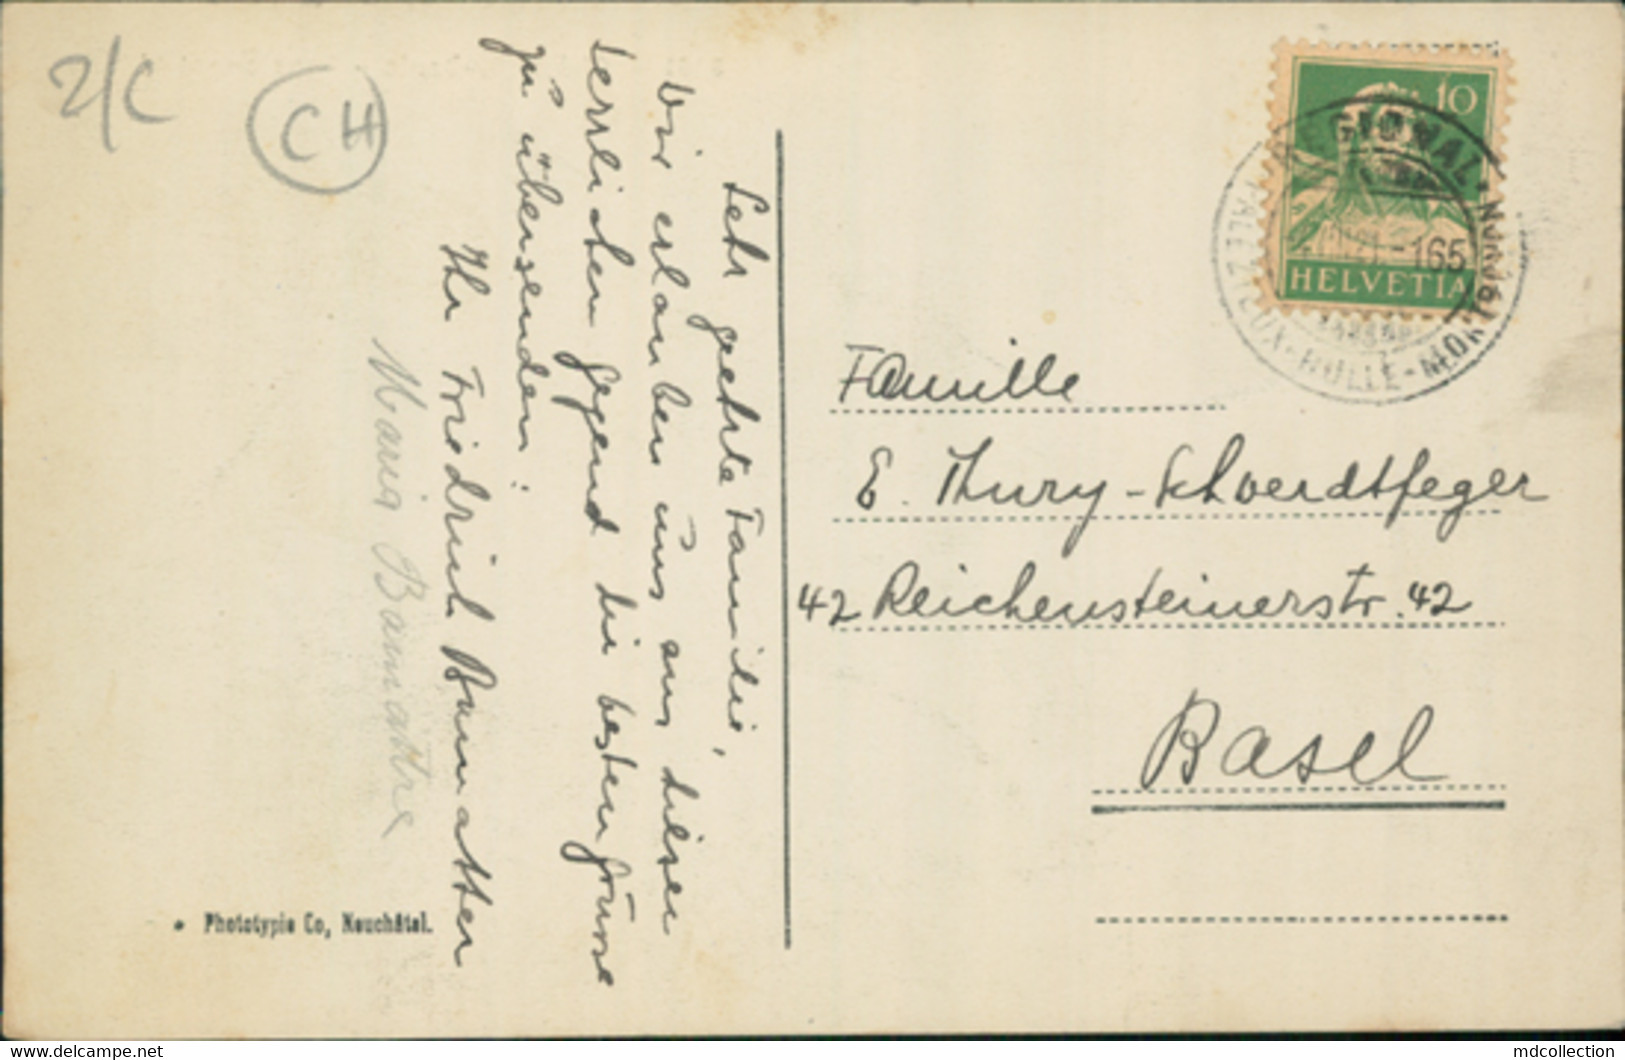 2/C
CH
Sehr geehrte Familie,
Wir erlauben uns aus dieser
herrlichen Gegend die besten Grüsse
zu übersenden:
Ihr Friedrich Baumatter
Maria Baumatter
Phototypie Co, Neuchâtel.
10
HELVETIA
PALEZIEUX-BULLE-MON
-165
Famille
E. Thury-Schwerdtfeger
42 Reichensteinerstr. 42
Basel
www.delcampe.net
mdcollection